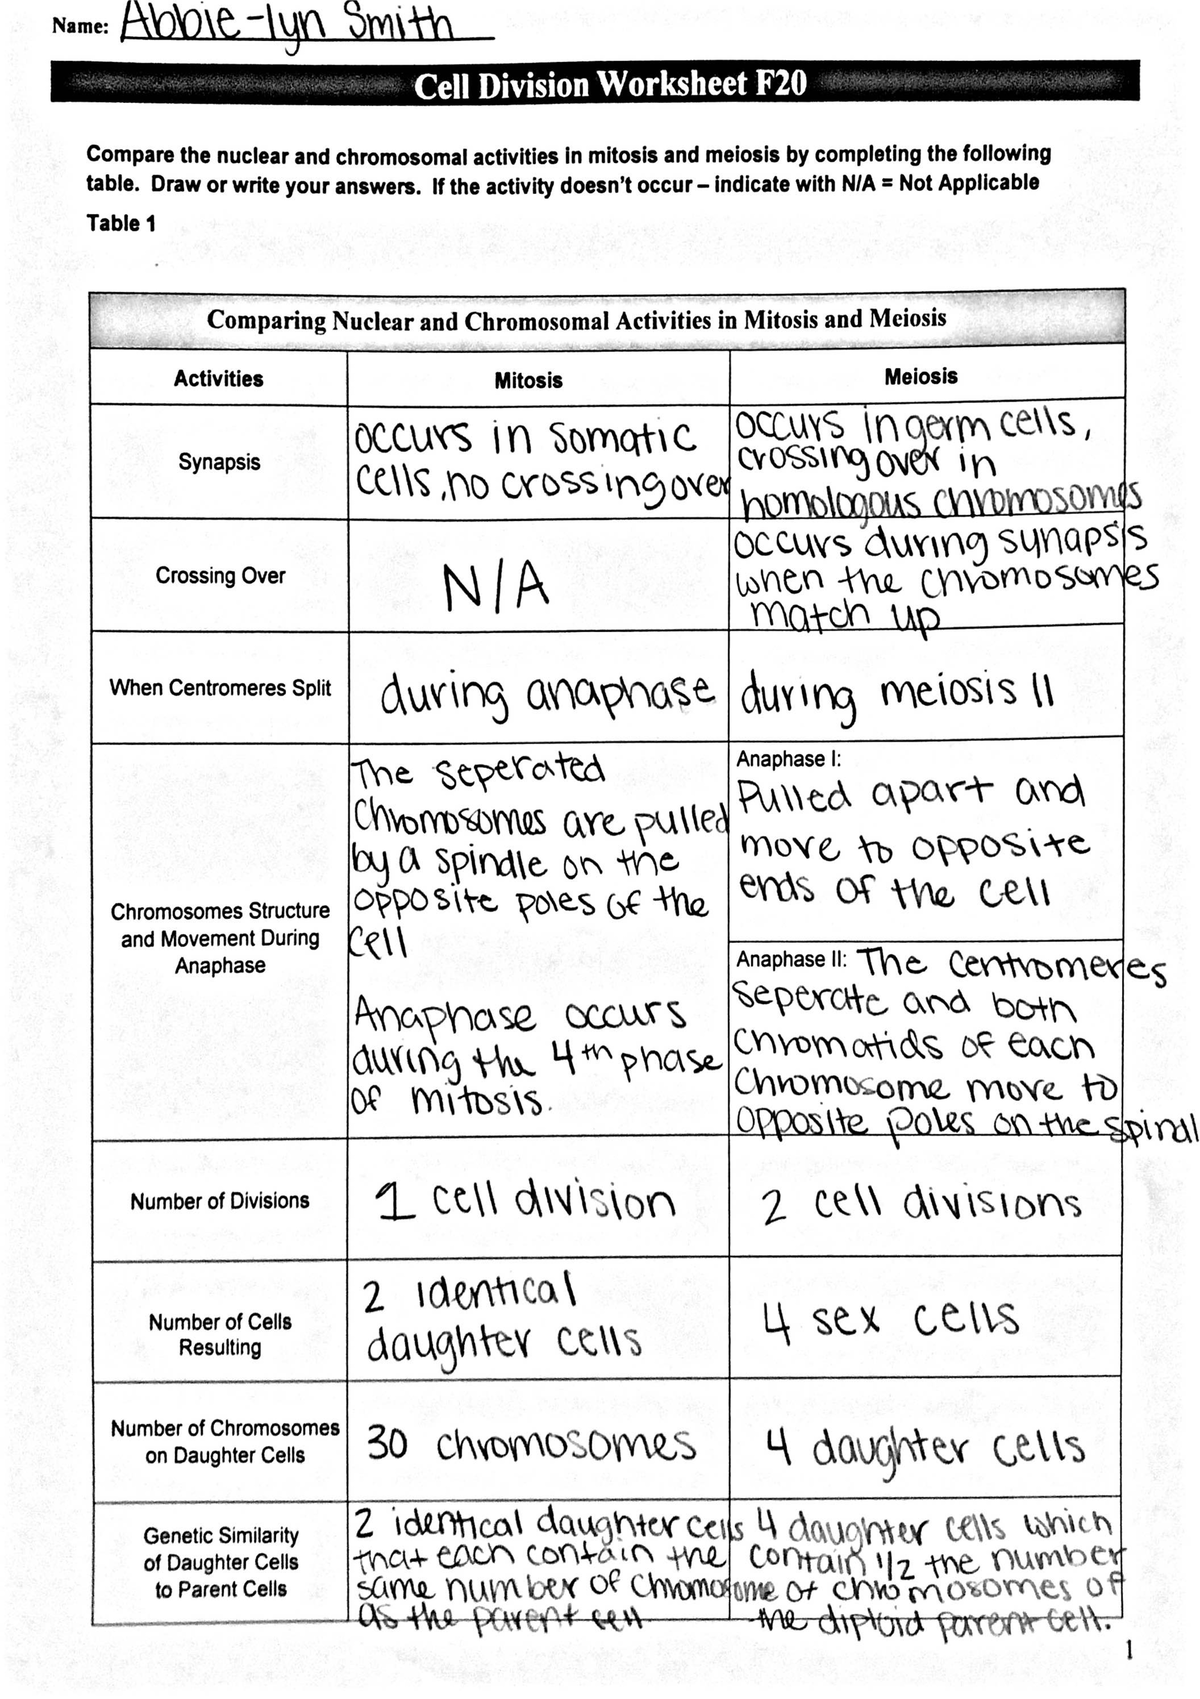 Name: Abbie-lyn Smith
Cell Division Worksheet F20
Compare the nuclear and chromosomal activities in mitosis and meiosis by completing the following
table. Draw or write your answers. If the activity doesn't occur – indicate with N/A = Not Applicable
Table 1
Comparing Nuclear and Chromosomal Activities in Mitosis and Meiosis
Activities
Mitosis
Meiosis
Synapsis
occurs in somatic
cells, no crossing over
occurs in germ cells,
crossing over in
homologous chromosomes
Crossing Over
N/A
occurs during synapsis
when the chromosomes
match up
When Centromeres Split
during anaphase
during meiosis II
Chromosomes Structure
and Movement During
Anaphase
The seperated
chromosomes are pulled
by a spindle on the
opposite poles of the
cell
Anaphase occurs
during the 4th phase
of mitosis.
Anaphase I:
Pulled apart and
move to opposite
ends of the cell
Anaphase II: The centromeres
seperate and both
chromatids of each
chromosome move to
opposite poles on the spinal
Number of Divisions
1 cell division
2 cell divisions
Number of Cells
Resulting
2 identical
daughter cells
4 sex cells
Number of Chromosomes
on Daughter Cells
30 chromosomes
4 daughter cells
Genetic Similarity
of Daughter Cells
to Parent Cells
2 identical daughter cells
that each contain the
same number of chromosome
as the parent cell
4 daughter cells which
contain 1/2 the number
of chromosomes of
the diploid parent cell.
1